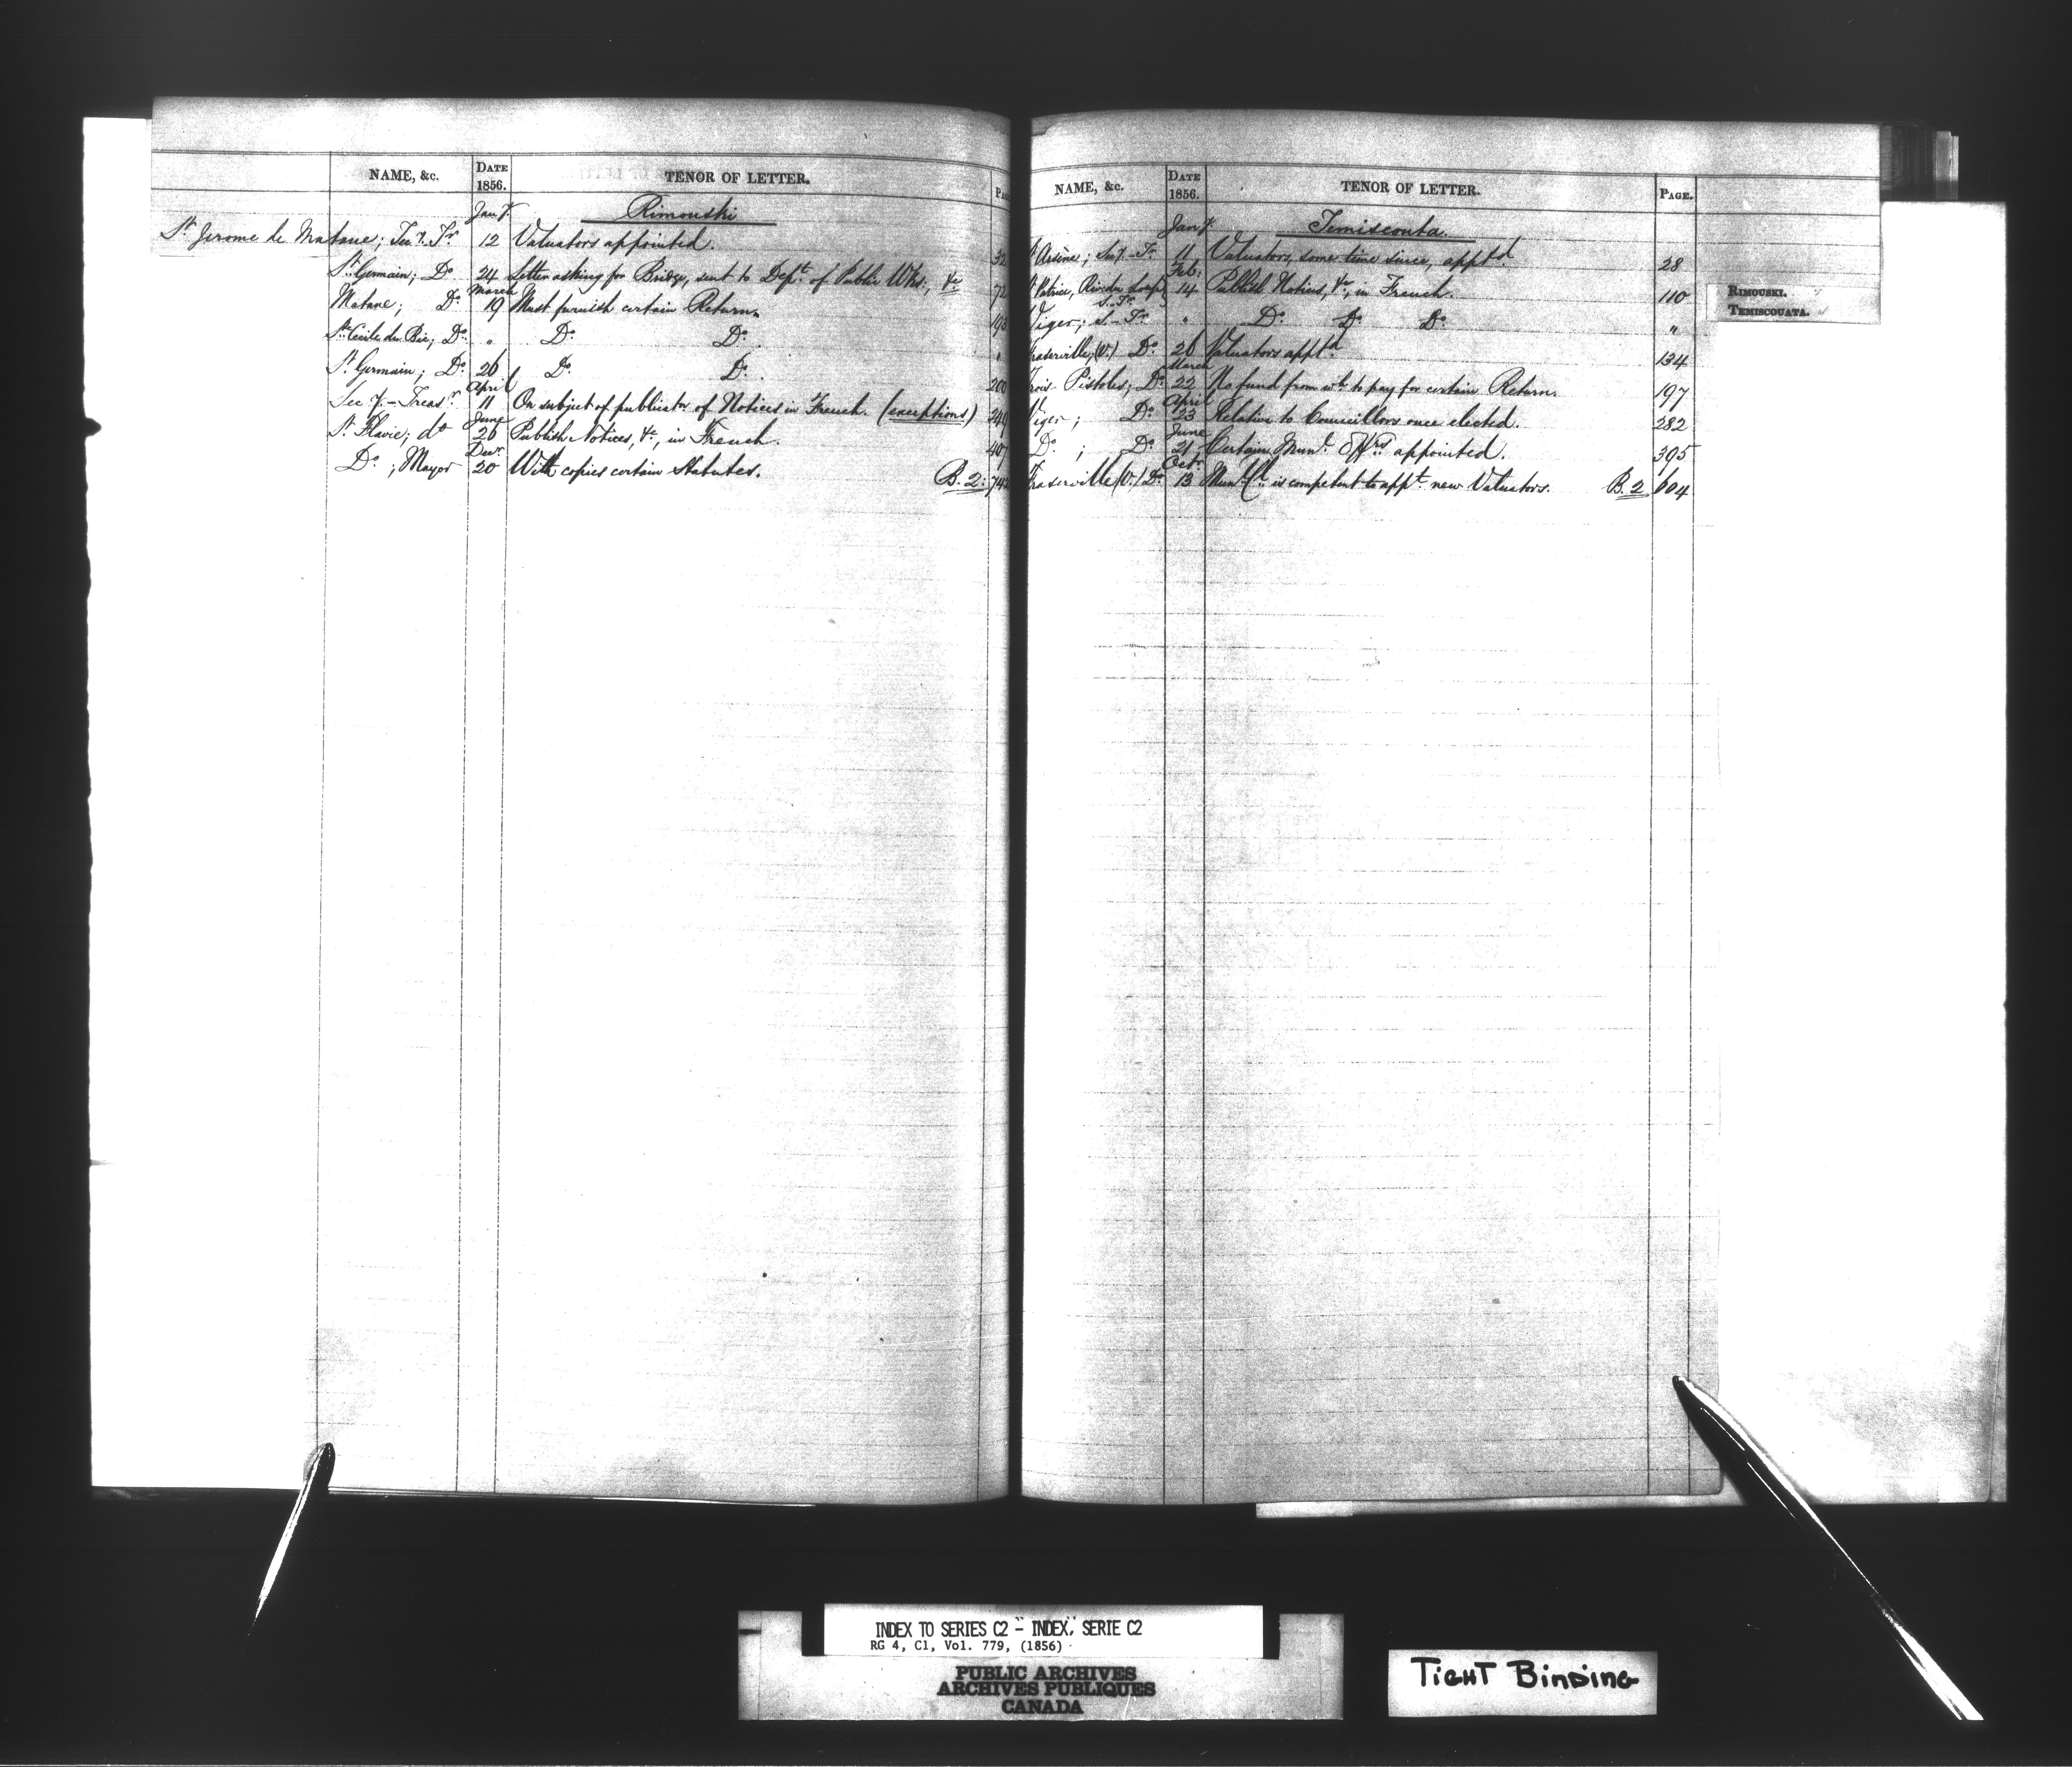 NAME, &c. DATE 1856. TENOR OF LETTER.
Jany. Rimouski
St Jerome de Matane; Secy. Tr. 12 Valuators appointed. 32
St Germain; Do 24 Letter asking for Bridge, sent to Dept. of Public Wks., &c 72
March
Matane; Do 19 Must furnish certain Return.
Ste Cécile du Bic; Do " Do Do "
St Germain; Do 26 Do Do 200
April
Secy.-Treasr 11 On subject of publicatn of Notices in French. (exceptions) 249
June
St Flavie; do 26 Publish Notices, &c, in French. 407
Decr.
Do; Mayor 20 With copies certain Statutes. B. 2: 742
NAME, &c. DATE 1856. TENOR OF LETTER. PAGE.
Jany. Temiscouta.
St Arsène; Secy-Tr. 11 Valuators, some time since, apptd. 28
Feb.
St Patrice, Riv. du Loup S.-Tr. 14 Publish Notices, &c, in French. 110
Viger; S.-Tr. " Do Do Do "
Fraserville, (V.) Do 26 Valuators apptd 134
March
Trois Pistoles; Do 22 No fund from wh. to pay for certain Return. 197
April
Viger; Do 23 Relative to Councillors once elected. 282
June
Do; Do 21 Certain Munl. Offrs appointed. 395
Octr.
Fraserville (V.) Do 13 Munl. Cl. is competent to appt. new Valuators. B. 2 604
RIMOUSKI.
TEMISCOUATA.
INDEX TO SERIES C2 - INDEX, SERIE C2
RG 4, C1, Vol. 779, (1856)
PUBLIC ARCHIVES
ARCHIVES PUBLIQUES
CANADA
TIGHT BINDING